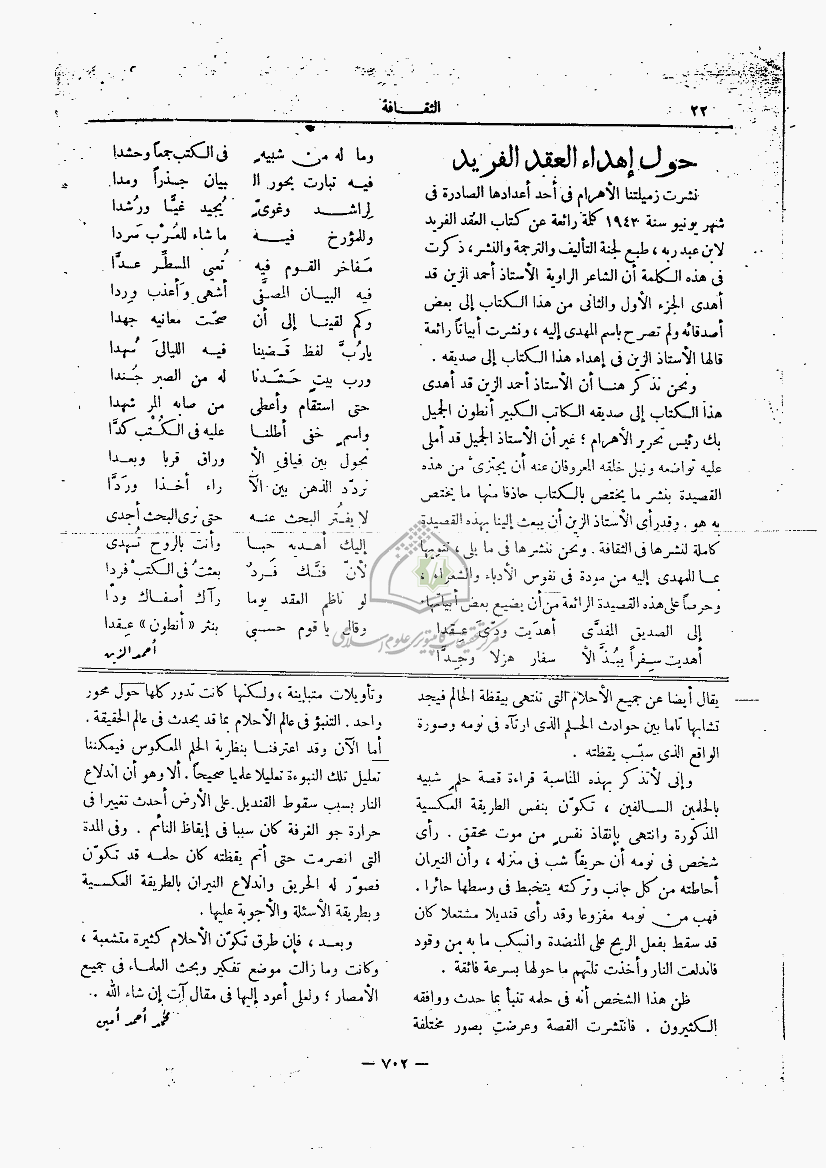 ٢٢
الثقافة
حول إهداء العقد الفريد
نشرت زميلتنا الأهرام فى أحد أعدادها الصادرة فى
شهر يونيو سنة ١٩٤٣ كلمة رائعة عن كتاب العقد الفريد
لابن عبد ربه ، طبع لجنة التأليف والترجمة والنشر، ذكرت
فى هذه الكلمة أن الشاعر الراوية الأستاذ أحمد الزين قد
أهدى الجزء الأول والثانى من هذا الكتاب إلى بعض
أصدقائه ولم تصرح باسم المهدى إليه ، ونشرت أبياتاً رائعة
قالها الأستاذ الزين فى إهداء هذا الكتاب إلى صديقه .
ونحن نذكر هنا أن الأستاذ أحمد الزين قد أهدى
هذا الكتاب إلى صديقه الكاتب الكبير أنطون الجميل
بك رئيس تحرير الأهرام ؛ غير أن الأستاذ الجميل قد أملى
عليه تواضعه ونبل خلقه المعروفان عنه أن يجتزىء من هذه
القصيدة بنشر ما يختص بالكتاب حاذفا منها ما يختص
به هو . وقد رأى الأستاذ الزين أن يبعث إلينا بهذه القصيدة
كاملة لنشرها فى الثقافة . ونحن ننشرها فى ما يلى ، تنويها
بما للمهدى إليه من مودة فى نفوس الأدباء والشعراء ،
وحرصاً على هذه القصيدة الرائعة من أن يضيع بعض أبياتها
إلى الصديق المفدَّى أهديت ودّى عِقدا
أهديت سِفراً يبُذَّ الأ سفار هزلا وجِدَّا
وما له من شبيهٍ فى الكتب جمعاً وحشدا
فيه تبارت بحور ال بيان جزراً ومدا
لراشد وغوىّ يُجيد غيًّا ورُشدا
وللمؤرخ فيه ما شاء للعُرْب سَردا
مفاخر القوم فيه تُعيى المسطِّر عدًّا
فيه البيان المصفَّى أشهى وأعذب وردا
وكم لقينا إلى أن صحّت معانيه جهدا
يا رُبَّ لفظ قضينا فيه الليالىَ سُهدا
ورب بيتٍ حَشَدنا له من الصبر جُندا
حتى استقام وأعطى من صابه المر شهدا
واسمٍ خفى أطلنا عليه فى الكُتْب كدَّا
نجول بين فيافى الأ وراق قربا وبعدا
نردّد الذهن بين الآ راء أخذا وردَّا
لا يفتُر البحث عنه حتى نرى البحث أجدى
إليك أهديه حبا وأنت بالروح تُهدى
لأنّ فنّك فَردٌ بعثتُ فى الكتب فردا
لو ناظم العقد يوما رآك أصفاك ودّا
وقال يا قوم حسبى بنثر «أنطون» عِقدا
أحمد الزين
يقال أيضا عن جميع الأحلام التى تنتهى بيقظة الحالم فيجد
تشابها تاما بين حوادث الحلم الذى ارتآه فى نومه وصورة
الواقع الذى سبّب يقظته .
وإنى لأتذكر بهذه المناسبة قراءة قصة حلمٍ شبيه
بالحلمين السالفين ، تكوّن بنفس الطريقة العكسية
المذكورة وانتهى بإنقاذ نفسٍ من موت محقق . رأى
شخص فى نومه أن حريقاً شب فى منزله ، وأن النيران
أحاطته من كل جانب وتركته يتخبط فى وسطها حائرا .
فهب من نومه مفزوعا وقد رأى قنديلا مشتعلا كان
قد سقط بفعل الريح على المنضدة وانسكب ما به من وقود
فاندلعت النار وأخذت تلتهم ما حولها بسرعة فائقة .
ظن هذا الشخص أنه فى حلمه تنبأ بما حدث ووافقه
الكثيرون . فانتشرت القصة وعرضت بصور مختلفة
وتأويلات متباينة ، ولكنها كانت تدور كلها حول محور
واحد . التنبؤ فى عالم الأحلام بما قد يحدث فى عالم الحقيقة .
أما الآن وقد اعترفنا بنظرية الحلم المعكوس فيمكننا
تعليل تلك النبوءة تعليلا علميا صحيحاً . ألا وهو أن اندلاع
النار بسبب سقوط القنديل على الأرض أحدث تغييرا فى
حرارة جو الغرفة كان سببا فى إيقاظ النائم . وفى المدة
التى انصرمت حتى أتم يقظته كان حلمه قد تكوّن
فصوّر له الحريق واندلاع النيران بالطريقة العكسية
وبطريقة الأسئلة والأجوبة عليها .
وبعد ، فإن طرق تكوّن الأحلام كثيرة متشعبة ،
وكانت وما زالت موضع تفكير وبحث العلماء فى جميع
الأمصار ؛ ولعلى أعود إليها فى مقال آت إن شاء الله .
محمد أحمد أمين
— ٧٠٢ —
مركز تحقیقات کامپیوتری علوم اسلامی